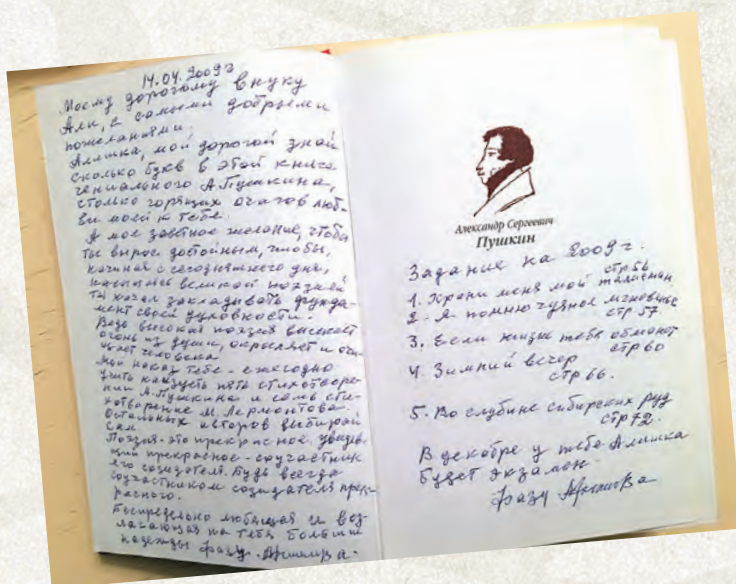 14.04.2009г
Моему дорогому внуку
Али, с самыми добрыми
пожеланиями,
Алишка, мой дорогой знай
сколько букв в этой книге
гениального А.Пушкина,
столько горящих очагов люб-
ви моей к тебе.
А мое заветное желание, чтобы
ты вырос достойным, чтобы,
начиная с сегодняшнего дня,
великой поэзией
ты начал закладывать фунда-
мент своей духовности.
Ведь высокая поэзия высекает
огонь из души, окрыляет и очи-
щает человека
Мой наказ тебе - ежегодно
учить наизусть пять стихотворе-
ний А.Пушкина и семь сти-
хотворение М. Лермонтова.
Остальных авторов выбирай
сам.
Поэзия - это прекрасное, увидев-
ший прекрасное - соучастник
его созидателя. Будь всегда
соучастником созидателя прек-
расного.
Беспредельно любящая и воз-
лагающая на тебя большие
надежды Фазу.
Александр Сергеевич
Пушкин
Задание на 2009г.
стр 56
1. Храни меня мой талисман
2. Я помню чудное мгновенье
стр 57
3. Если жизнь тебя обманет
стр 60
4. Зимний вечер
стр 66.
5. Во глубине сибирских руд
стр 72.
В декабре у тебя Алишка
будет экзамен.
Фазу